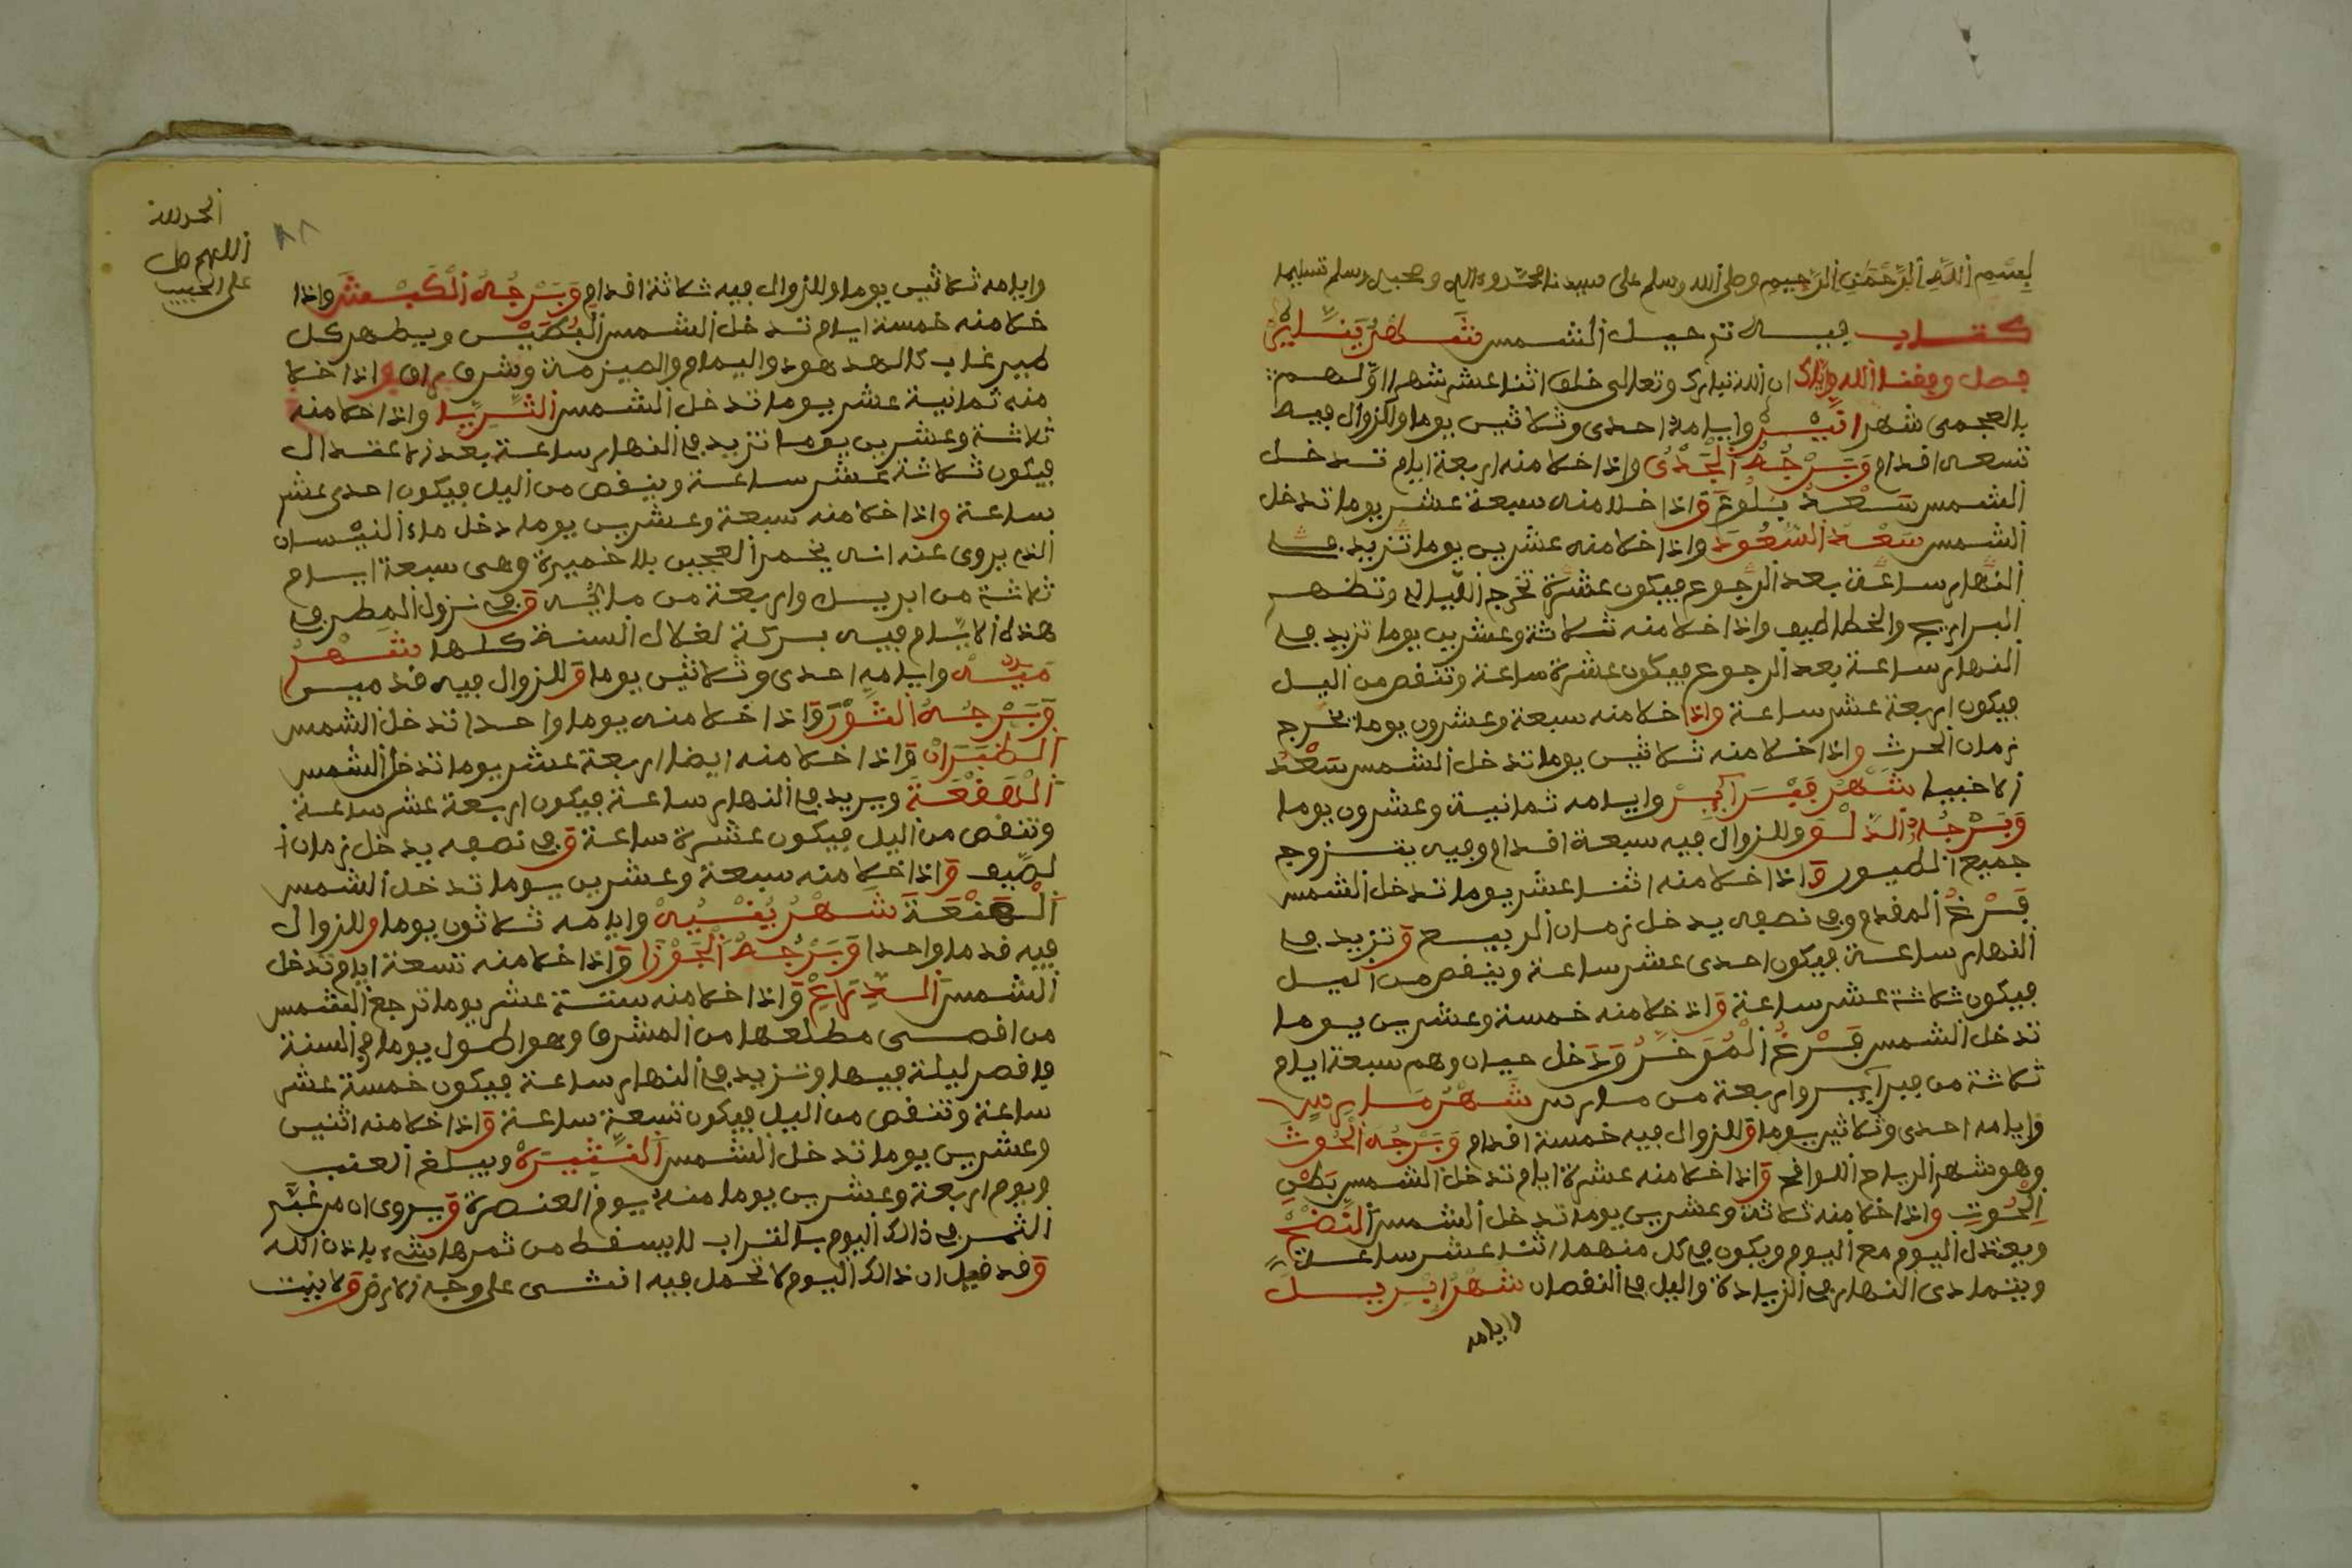 بسم الله الرحمن الرحيم وصلى الله وسلم على سيدنا محمد وءاله وصحبه وسلم تسليما
كتاب فيه ترحيل الشمس شهر ينّاير
فصل وفقنا الله وإياك ان الله تبارك وتعالى خلق اثنا عشر شهرا اوّلهم
بالعجمى شهر انّيير وايامه احدى وثلاثين يوما والزوال فيه
تسعه اقدام وبرجه الجدى واذا خلا منه اربعة ايام تدخل
الشمس سعد بلوع واذا خلا منه سبعة عشر يوما تدخل
الشمس سعد السعود واذا خلا منه عشرين يوما تزيد في
النهار ساعة بعد الرجوع فيكون عشرة تخرج الليالي وتظهر
البراريج والخطاطيف واذا خلا منه ثلاثة وعشرين يوما تزيد في
النهار ساعة بعد الرجوع فيكون عشرة ساعة وتنقص من اليل
فيكون اربعة عشر ساعة واذا خلا منه سبعة وعشرون يوما تخرج
زمان الحرث واذا خلا منه ثلاثين يوما تدخل الشمس سعد
الاخبيا شهر فبراير وايامه ثمانية وعشرون يوما
وبرجه الدلو وللزوال فيه سبعة اقدام وفيه يتزوج
جميع الطيور واذا خلا منه اثنا عشر يوما تدخل الشمس
فرغ المقدم وفي نصفه يدخل زمان الربيع وتزيد في
النهار ساعة فيكون احدى عشر ساعة وينقص من اليل
فيكون ثلاثة عشر ساعة واذا خلا منه خمسة وعشرين يوما
تدخل الشمس فرغ الموخر وتدخل حيان وهم سبعة ايام
ثلاثة من فبراير واربعة من مارس شهر مارس
وايامه احدى وثلاثين يوما وللزوال فيه خمسة اقدام وبرجه الحوت
وهو شهر الرياح اللواقح واذا خلا منه عشرة ايام تدخل الشمس بطن
الحوت واذا خلا منه ثلاثة وعشرين يوما تدخل الشمس النطح
ويعتدل اليوم مع اليوم ويكون في كل منهما اثنا عشر ساعة
ويتمادى النهار في الزيادة واليل في النقصان شهر ابريل
وايامه
الحمد لله
اللهم صل
على الحبيب
٨٨
وايامه ثلاثين يوما وللزوال فيه ثلاثة اقدام وبرجه الكبش واذا
خلا منه خمسة ايام تدخل الشمس البطين ويظهر كل
طير غاب كالهدهود واليمام
منه ثمانية عشر يوما تدخل الشمس الثريا واذا خلا منه
ثلاثة وعشرين يوما تزيد في النهار ساعة بعد الاعتدال
فيكون ثلاثة عشر ساعة وينقص من اليل فيكون احدى عشر
ساعة واذا خلا منه سبعة وعشرين يوما دخل ماء النيسان
الذي يروى عنه انه يخمر العجين بلا خميرة وهى سبعة ايام
ثلاثة من ابريل واربعة من مايه وفي نزول المطر في
هذه الايام فيه بركة لغلال السنة كلها شهر
ميّه وايامه احدى وثلاثين يوما وللزوال فيه قدمين
وبرجه الثور واذا خلا منه يوما واحدا تدخل الشمس
الطبران واذا خلا منه ايضا اربعة عشر يوما تدخل الشمس
الهقعة ويريد في النهار ساعة فيكون اربعة عشر ساعة
وتنقص من اليل فيكون عشرة ساعة وفي نصفه يدخل زمان ا
لصيف واذا خلا منه سبعة وعشرين يوما تدخل الشمس
الهنعة شهر يونيه وايامه ثلاثون يوما وللزوال
فيه قدما واحدا وبرجه الجوزا واذا خلا منه تسعة ايام تدخل
الشمس الذراع واذا خلا منه ستة عشر يوما ترجع الشمس
من اقصى مطلعها من المشرق وهو اطول يوما في السنة
واقصر ليلة فيها وتزيد في النهار ساعة فيكون خمسة عشر
ساعة وتنقص من اليل فيكون تسعة ساعة واذا خلا منه اثنين
وعشرين يوما تدخل الشمس النثيرة ويبلغ العنب
ويوم اربعة وعشرين يوما منه يوم العنصرة ويروى ان من غبّر
الثمر في ذالك اليوم بالتراب لا يسقط من ثمرها شيء باذن الله
وقد قيل ان ذالك اليوم لا تحمل فيه انثى على وجه الارض ولا ينبت